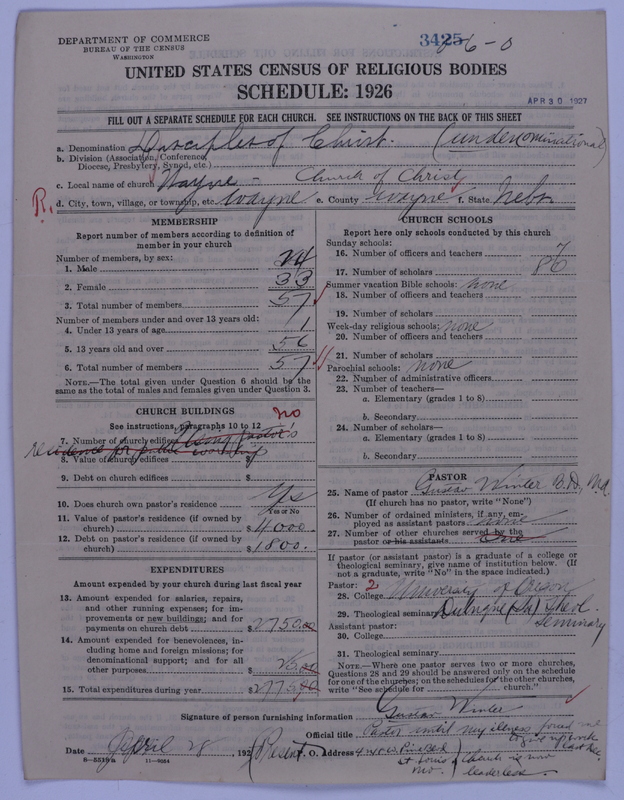 DEPARTMENT OF COMMERCE
BUREAU OF THE CENSUS
WASHINGTON
3425
6-0
UNITED STATES CENSUS OF RELIGIOUS BODIES
SCHEDULE: 1926
APR 30 1927
FILL OUT A SEPARATE SCHEDULE FOR EACH CHURCH. SEE INSTRUCTIONS ON THE BACK OF THIS SHEET
a. Denomination Disciples of Christ. (undenominational)
b. Division (Association, Conference, Diocese, Presbytery, Synod, etc.)
c. Local name of church Wayne - Church of Christ
R. d. City, town, village, or township, etc. Wayne e. County Wayne f. State Nebr
MEMBERSHIP
Report number of members according to definition of member in your church
Number of members, by sex:
1. Male 24
2. Female 33
3. Total number of members 57
Number of members under and over 13 years old:
4. Under 13 years of age 1
5. 13 years old and over 56
6. Total number of members 57
NOTE.—The total given under Question 6 should be the same as the total of males and females given under Question 3.
CHURCH BUILDINGS
no
See instructions, paragraphs 10 to 12
7. Number of church edifices Using pastor's
residence for public worship
8. Value of church edifices $
9. Debt on church edifices $
10. Does church own pastor's residence Yes
Yes or No
11. Value of pastor's residence (if owned by church) $ 4000.
12. Debt on pastor's residence (if owned by church) $ 1800.
EXPENDITURES
Amount expended by your church during last fiscal year
13. Amount expended for salaries, repairs, and other running expenses; for improvements or new buildings; and for payments on church debt $ 2750.00
14. Amount expended for benevolences, including home and foreign missions; for denominational support; and for all other purposes $ 25.00
15. Total expenditures during year $ 2775.00
CHURCH SCHOOLS
Report here only schools conducted by this church
Sunday schools:
16. Number of officers and teachers 7
17. Number of scholars 86
Summer vacation Bible schools: none
18. Number of officers and teachers
19. Number of scholars
Week-day religious schools: none
20. Number of officers and teachers
21. Number of scholars
Parochial schools: none
22. Number of administrative officers
23. Number of teachers—
a. Elementary (grades 1 to 8)
b. Secondary
24. Number of scholars—
a. Elementary (grades 1 to 8)
b. Secondary
PASTOR
25. Name of pastor Gustav Winter B.D., M.A.
(If church has no pastor, write "None")
26. Number of ordained ministers, if any, employed as assistant pastors none
27. Number of other churches served by the pastor or his assistants One
If pastor (or assistant pastor) is a graduate of a college or theological seminary, give name of institution below. (If not a graduate, write "No" in the space indicated.)
Pastor: 2
28. College University of Oregon
29. Theological seminary Dubuque (Ia) Theol. Seminary
Assistant pastor:
30. College
31. Theological seminary
NOTE.—Where one pastor serves two or more churches, Questions 28 and 29 should be answered only on the schedule for one of the churches; on the schedules for the other churches, write "See schedule for church."
Signature of person furnishing information Gustav Winter
Official title Pastor until my illness forced me
to give up work
Date April 28, 192 (Present P. O. Address
St Louis
Mo.
Church is now
leaderless.
8-5518a 11-9054